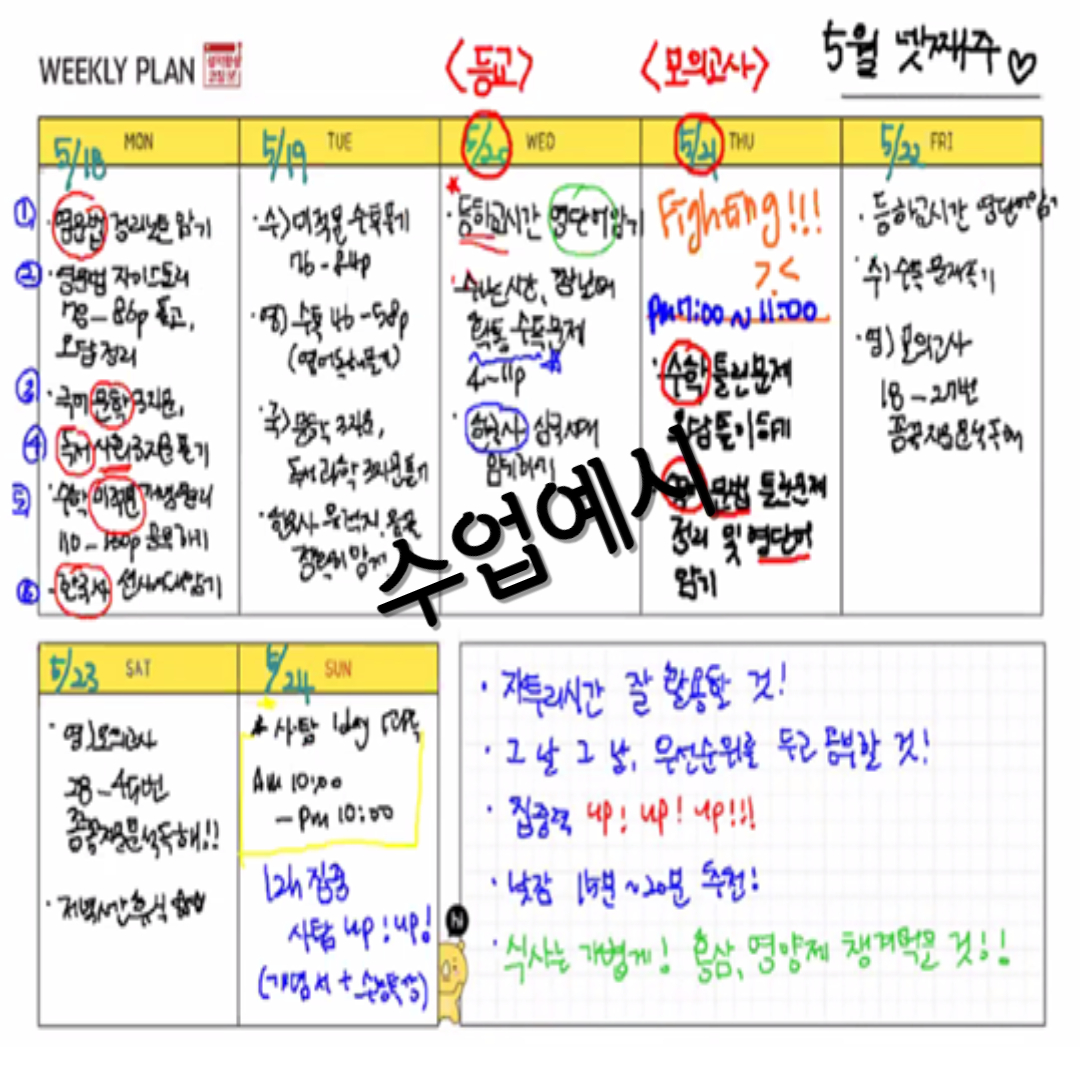 WEEKLY PLAN
<등교>
<모의고사>
5월 넷째주♡
5/18 MON
① · 영문법 정리노트 암기
② · 영문법 자이스토리
78-86p 풀고,
오답정리
③ · 국어 문학 3지문,
④ 독서 사회 3지문 풀기
⑤ · 수학 미적분 개념원리
⑥ - 한국사 선사시대 암기
5/19 TUE
· 수) 미적분 수특풀기
76-84p
· 영) 수특 46-58p
· 국) 문학 3지문,
독서 과학 3지문 풀기
5/20 WED
· 등하교시간 영단어 암기
쉬는시간, 점심시간
확통 수특문제
4~11p
· 한국사 삼국시대
암기하기
5/21 THU
Fighting!!!
>.<
pm 7:00 ~ 11:00
· 수학 틀린문제
오답풀이하기
· 영어 문법 틀린문제
정리 및 영단어
암기
5/22 FRI
· 등하교시간 영단어암기
· 수) 수특 문제풀기
· 영) 모의고사
18-27번
수업예시
5/23 SAT
· 영) 모의고사
28-45번
· 저녁시간 휴식
5/24 SUN
* 사탐 1day
Am 10:00
- pm 10:00
12h 집중
사탐 up! up!
(개념서 + 수능특강)
· 자투리시간 잘 활용할 것!
· 그날 그날, 우선순위를 두고 공부할 것!
· 집중력 up! up! up!!!
· 낮잠 15분~20분 추천!
· 식사는 가볍게! 홍삼, 영양제 챙겨먹을 것!!
hi